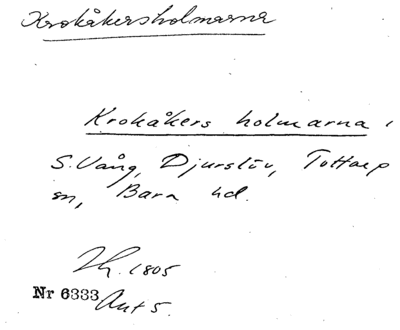 Krokåkersholmarna
Krokåkers holmarna i
S. Vång, Djurslöv, Tottarp
sn, Bara hd.
Zh. 1805
Nr 6333 Akt 5.